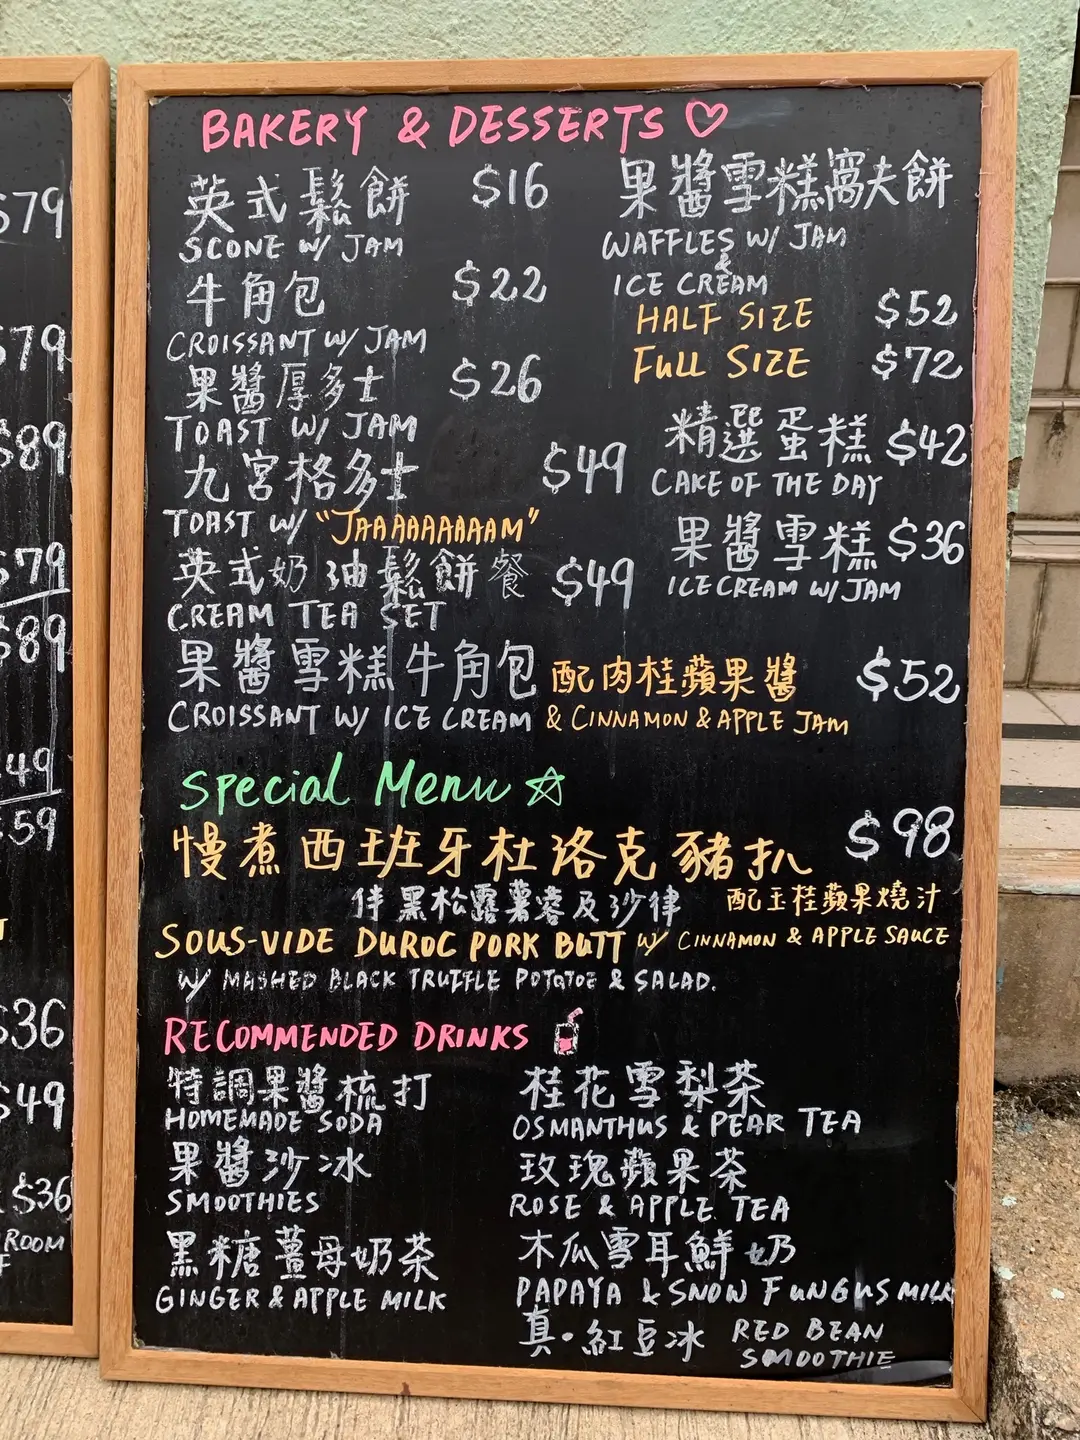 BAKERY & DESSERTS
英式鬆餅 $16
SCONE W/ JAM
牛角包 $22
CROISSANT W/ JAM
果醬厚多士 $26
TOAST W/ JAM
九宮格多士 $49
TOAST W/ "JAAAAAAAAAM"
英式奶油鬆餅餐 $49
CREAM TEA SET
果醬雪糕窩夫餅
WAFFLES W/ JAM
&
ICE CREAM
HALF SIZE $52
FULL SIZE $72
精選蛋糕 $42
CAKE OF THE DAY
果醬雪糕 $36
ICE CREAM W/ JAM
果醬雪糕牛角包 配肉桂蘋果醬 $52
CROISSANT W/ ICE CREAM & CINNAMON & APPLE JAM
Special Menu
慢煮西班牙杜洛克豬扒 $98
伴黑松露薯蓉及沙律 配玉桂蘋果燒汁
SOUS-VIDE DUROC PORK BUTT W/ CINNAMON & APPLE SAUCE
W/ MASHED BLACK TRUFFLE POTATOE & SALAD.
RECOMMENDED DRINKS
特調果醬梳打
HOMEMADE SODA
果醬沙冰
SMOOTHIES
黑糖薑母奶茶
GINGER & APPLE MILK
桂花雪梨茶
OSMANTHUS & PEAR TEA
玫瑰蘋果茶
ROSE & APPLE TEA
木瓜雪耳鮮奶
PAPAYA & SNOW FUNGUS MILK
真·紅豆冰 RED BEAN
SMOOTHIE
$79
$79
$89
$79
$89
49
59
$36
$49
$36
ROOM